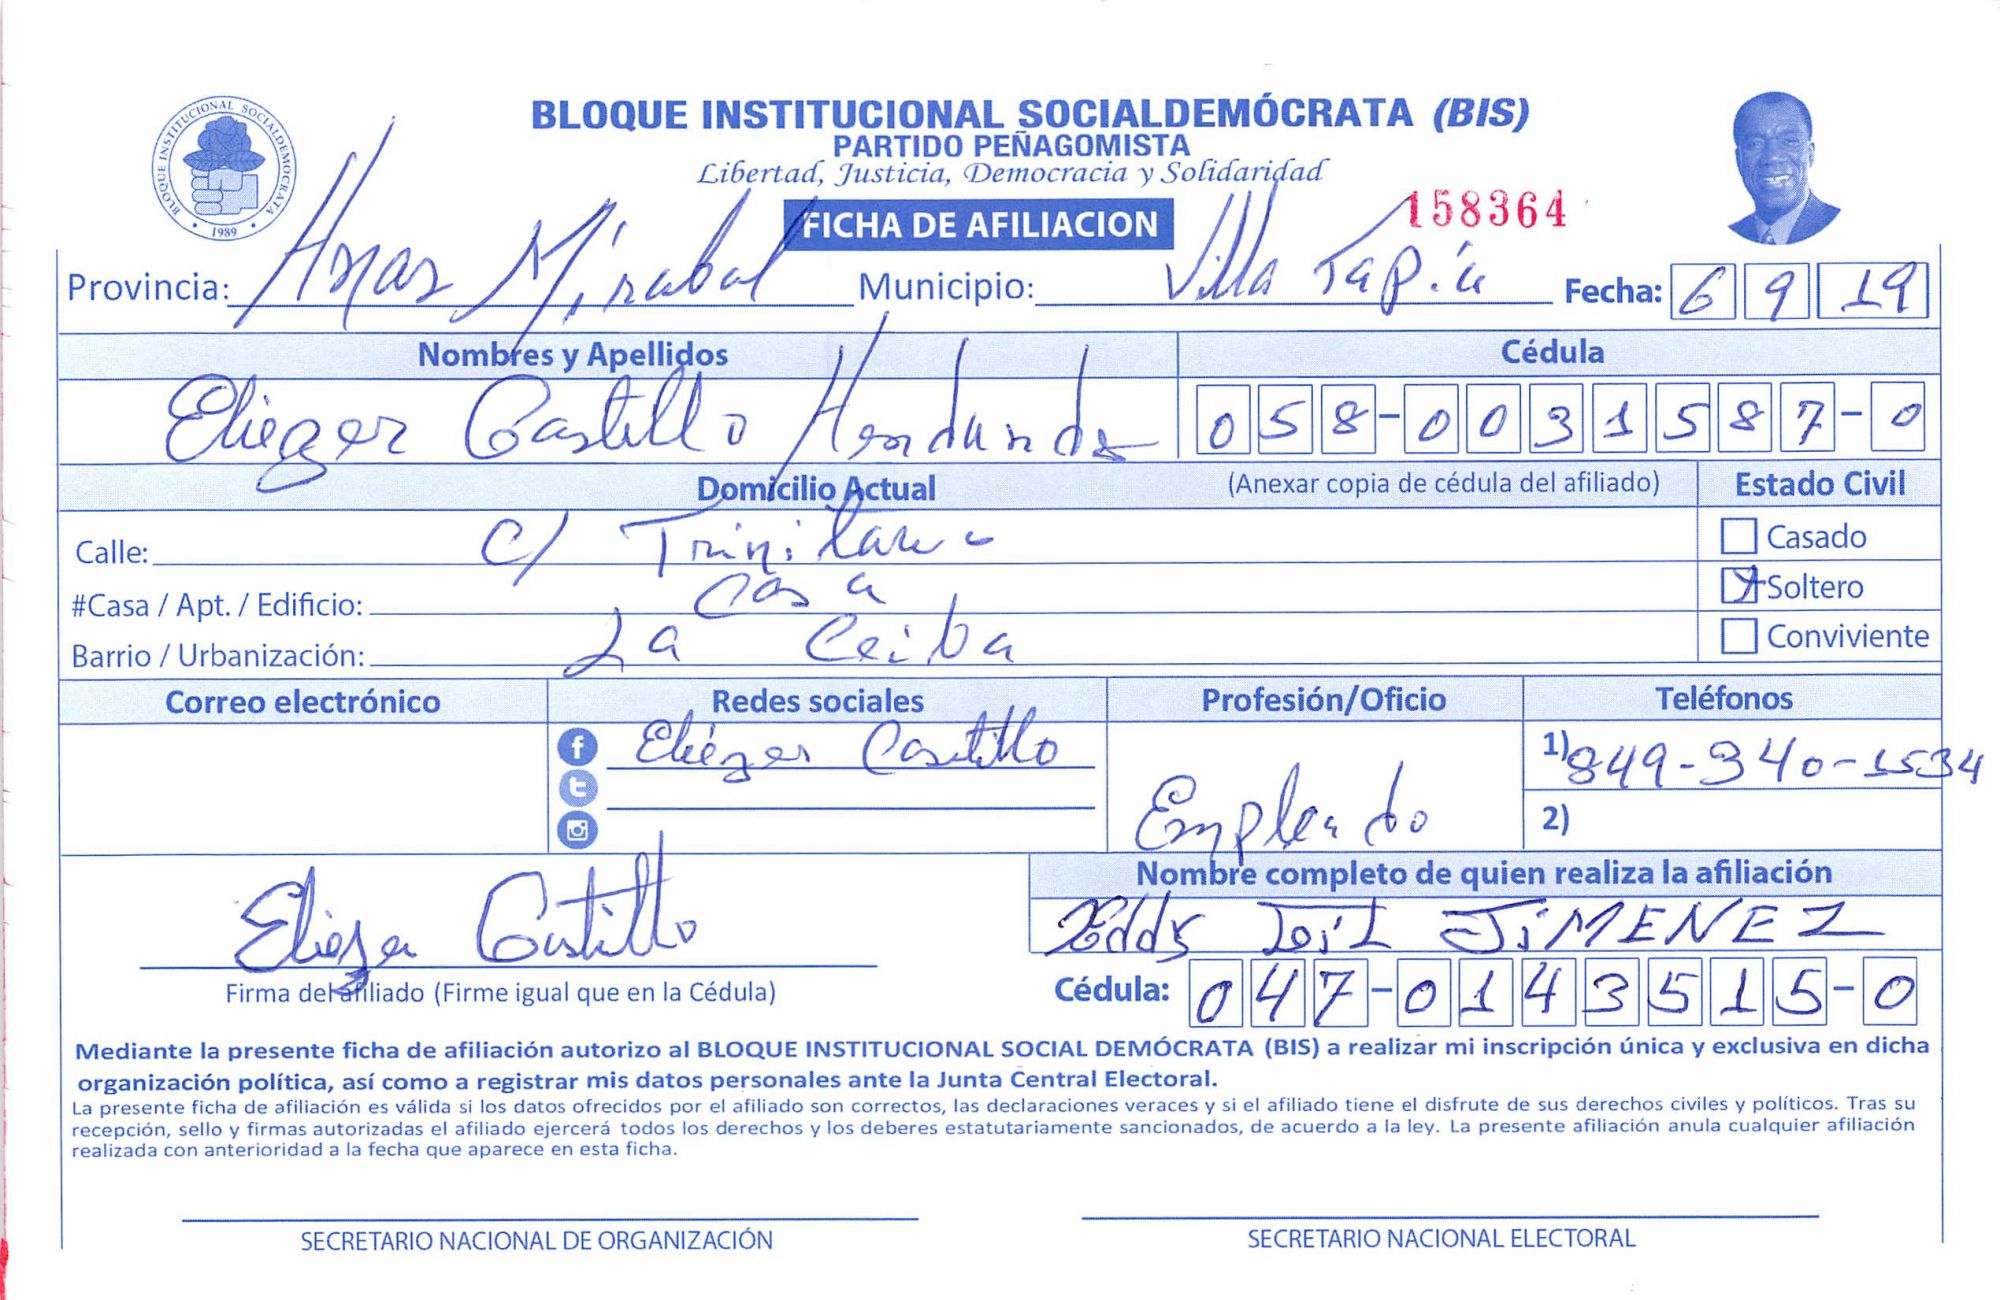 BLOQUE INSTITUCIONAL SOCIALDEMOCRATA
1989
BLOQUE INSTITUCIONAL SOCIALDEMÓCRATA (BIS)
PARTIDO PEÑAGOMISTA
Libertad, Justicia, Democracia y Solidaridad
FICHA DE AFILIACION
158364
Provincia: Mirabal Municipio: Villa Tapia Fecha: 6 9 19
Nombres y Apellidos Cédula
Eliezer Castillo 058-0031587-0
Domicilio Actual (Anexar copia de cédula del afiliado) Estado Civil
Calle: C/ Trinitaria Casado
#Casa / Apt. / Edificio: Casa Soltero
Barrio / Urbanización: La Ceiba Conviviente
Correo electrónico Redes sociales Profesión/Oficio Teléfonos
Eliézer Castillo Empleado 1) 849-340-1534
2)
Nombre completo de quien realiza la afiliación
Eliezer Castillo JiMENEZ
Firma del afiliado (Firme igual que en la Cédula) Cédula: 047-0143515-0
Mediante la presente ficha de afiliación autorizo al BLOQUE INSTITUCIONAL SOCIAL DEMÓCRATA (BIS) a realizar mi inscripción única y exclusiva en dicha
organización política, así como a registrar mis datos personales ante la Junta Central Electoral.
La presente ficha de afiliación es válida si los datos ofrecidos por el afiliado son correctos, las declaraciones veraces y si el afiliado tiene el disfrute de sus derechos civiles y políticos. Tras su
recepción, sello y firmas autorizadas el afiliado ejercerá todos los derechos y los deberes estatutariamente sancionados, de acuerdo a la ley. La presente afiliación anula cualquier afiliación
realizada con anterioridad a la fecha que aparece en esta ficha.
SECRETARIO NACIONAL DE ORGANIZACIÓN SECRETARIO NACIONAL ELECTORAL